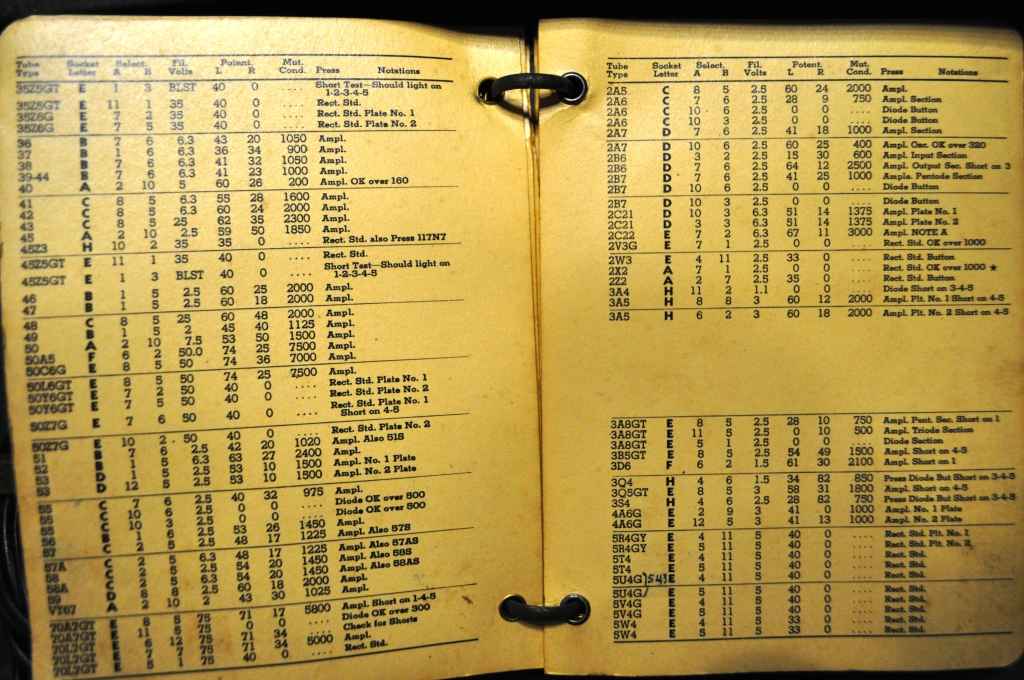 Tube Type Socket Letter Select. A B Fil. Volts Potent. L R Mut. Cond. Press Notations
35Z5GT E 1 3 BLST 40 0 .... Short Test—Should light on
1-2-3-4-5
35Z5GT E 11 1 35 40 0 .... Rect. Std.
35Z6G E 7 2 35 40 0 .... Rect. Std. Plate No. 1
35Z6G E 7 5 35 40 0 .... Rect. Std. Plate No. 2
36 B 7 6 6.3 43 20 1050 Ampl.
37 B 1 6 6.3 36 34 900 Ampl.
38 B 7 6 6.3 41 32 1050 Ampl.
39-44 B 7 6 6.3 41 23 1000 Ampl.
40 A 2 10 5 60 26 200 Ampl. OK over 160
41 C 8 5 6.3 55 28 1600 Ampl.
42 C 8 5 6.3 60 24 2000 Ampl.
43 C 8 5 25 62 35 2300 Ampl.
45 A 2 10 2.5 59 50 1850 Ampl.
45Z3 H 10 2 35 35 0 .... Rect. Std. also Press 117N7
45Z5GT E 11 1 35 40 0 .... Rect. Std.
45Z5GT E 1 3 BLST 40 0 .... Short Test—Should light on
1-2-3-4-5
46 B 1 5 2.5 60 25 2000 Ampl.
47 B 1 5 2.5 60 18 2000 Ampl.
48 C 8 5 25 60 48 2000 Ampl.
49 B 1 5 2 45 40 1125 Ampl.
50 A 2 10 7.5 53 50 1500 Ampl.
50A5 F 6 2 50.0 74 25 7500 Ampl.
50C6G E 8 5 50 74 36 7000 Ampl.
50L6GT E 8 5 50 74 25 7500 Ampl.
50Y6GT E 7 2 50 40 0 .... Rect. Std. Plate No. 1
50Y6GT E 7 5 50 40 0 .... Rect. Std. Plate No. 2
50Z7G E 7 6 50 40 0 .... Rect. Std. Plate No. 1
Short on 4-5
50Z7G E 10 2 50 40 0 .... Rect. Std. Plate No. 2
51 B 7 6 2.5 42 20 1020 Ampl. Also 51S
52 B 1 5 6.3 63 27 2400 Ampl.
53 D 1 5 2.5 53 10 1500 Ampl. No. 1 Plate
53 D 12 5 2.5 53 10 1500 Ampl. No. 2 Plate
55 C 7 6 2.5 40 32 975 Ampl.
55 C 10 6 2.5 0 0 .... Diode OK over 500
55 C 10 3 2.5 0 0 .... Diode OK over 500
56 B 1 6 2.5 53 26 1450 Ampl.
57 C 2 5 2.5 48 17 1225 Ampl. Also 57S
57A C 2 5 6.3 48 17 1225 Ampl. Also 57AS
58 C 2 5 2.5 54 20 1450 Ampl. Also 58S
58A C 2 5 6.3 54 20 1450 Ampl. Also 58AS
59 D 8 8 2.5 60 18 2000 Ampl.
VT67 A 2 10 2 43 30 1025 Ampl.
70A7GT E 8 5 75 71 17 5800 Ampl. Short on 1-4-5
70A7GT E 11 5 75 0 0 .... Diode OK over 300
70L7GT E 6 12 75 71 34 .... Check for Shorts
70L7GT E 7 75 71 34 5000 Ampl.
70L7GT E 5 1 75 40 0 .... Rect. Std.
Tube Type Socket Letter Select. A B Fil. Volts Potent. L R Mut. Cond. Press Notations
2A5 C 8 5 2.5 60 24 2000 Ampl.
2A6 C 7 6 2.5 28 9 750 Ampl. Section
2A6 C 10 6 2.5 0 0 .... Diode Button
2A6 C 10 3 2.5 0 0 .... Diode Button
2A7 D 7 6 2.5 41 18 1000 Ampl. Section
2A7 D 10 6 2.5 60 25 400 Ampl. Osc. OK over 320
2B6 D 3 2 2.5 15 30 600 Ampl. Input Section
2B6 D 7 6 2.5 64 12 2500 Ampl. Output Sec. Short on 3
2B7 D 7 6 2.5 41 25 1000 Ampls. Pentode Section
2B7 D 10 6 2.5 0 0 .... Diode Button
2B7 D 10 3 2.5 0 0 .... Diode Button
2C21 D 10 3 6.3 51 14 1375 Ampl. Plate No. 1
2C21 D 3 3 6.3 51 14 1375 Ampl. Plate No. 2
2C22 E 7 2 6.3 67 11 3000 Ampl. NOTE A
2V3G E 7 1 2.5 0 0 .... Rect. Std. OK over 1000
2W3 E 4 11 2.5 33 0 .... Rect. Std. Button
2X2 A 7 1 2.5 0 0 .... Rect. Std. OK over 1000 ★
2Z2 A 2 7 2.5 35 0 .... Rect. Std. Button
3A4 H 11 2 1.1 0 0 .... Diode Short on 3-4-5
3A5 H 8 8 3 60 12 2000 Ampl. Plt. No. 1 Short on 4-5
3A5 H 6 2 3 60 18 2000 Ampl. Plt. No. 2 Short on 4-5
3A8GT E 8 5 2.5 28 10 750 Ampl. Pent. Sec. Short on 1
3A8GT E 11 5 2.5 0 10 500 Ampl. Triode Section
3A8GT E 5 1 2.5 0 0 .... Diode Section
3B5GT E 8 5 2.5 54 49 1500 Ampl. Short on 4-5
3D6 F 6 2 1.5 61 30 2100 Ampl. Short on 1
3Q4 H 4 6 1.5 34 82 850 Press Diode But Short on 3-4-5
3Q5GT E 8 5 3 58 31 1800 Ampl. Short on 4-5
3S4 H 4 6 2.5 28 82 750 Press Diode But Short on 3-4-5
4A6G E 2 9 3 41 0 1000 Ampl. No. 1 Plate
4A6G E 12 5 3 41 13 1000 Ampl. No. 2 Plate
5R4GY E 4 11 5 40 0 .... Rect. Std. Plt. No. 1
5R4GY E 5 11 5 40 0 .... Rect. Std. Plt. No. 2
5T4 E 4 11 5 40 0 .... Rect. Std.
5T4 E 5 11 5 40 0 .... Rect. Std.
5U4G )5Y3 E 4 11 5 40 0 .... Rect. Std.
5U4G E 5 11 5 40 0 .... Rect. Std.
5V4G E 4 11 5 40 0 .... Rect. Std.
5V4G E 5 11 5 40 0 .... Rect. Std.
5W4 E 4 11 5 33 0 .... Rect. Std.
5W4 E 5 11 5 33 0 .... Rect. Std.